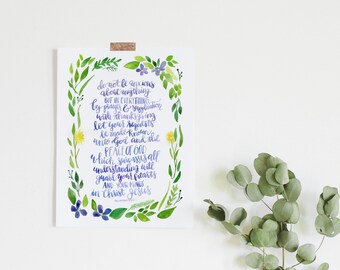 do not be anxious
about anything
BUT IN EVERYTHING
by prayer & supplication
with thanksgiving
let your requests
be made known
unto God and the
PEACE OF GOD
which surpasses all
understanding will
guard your hearts
AND YOUR MINDS
in Christ Jesus